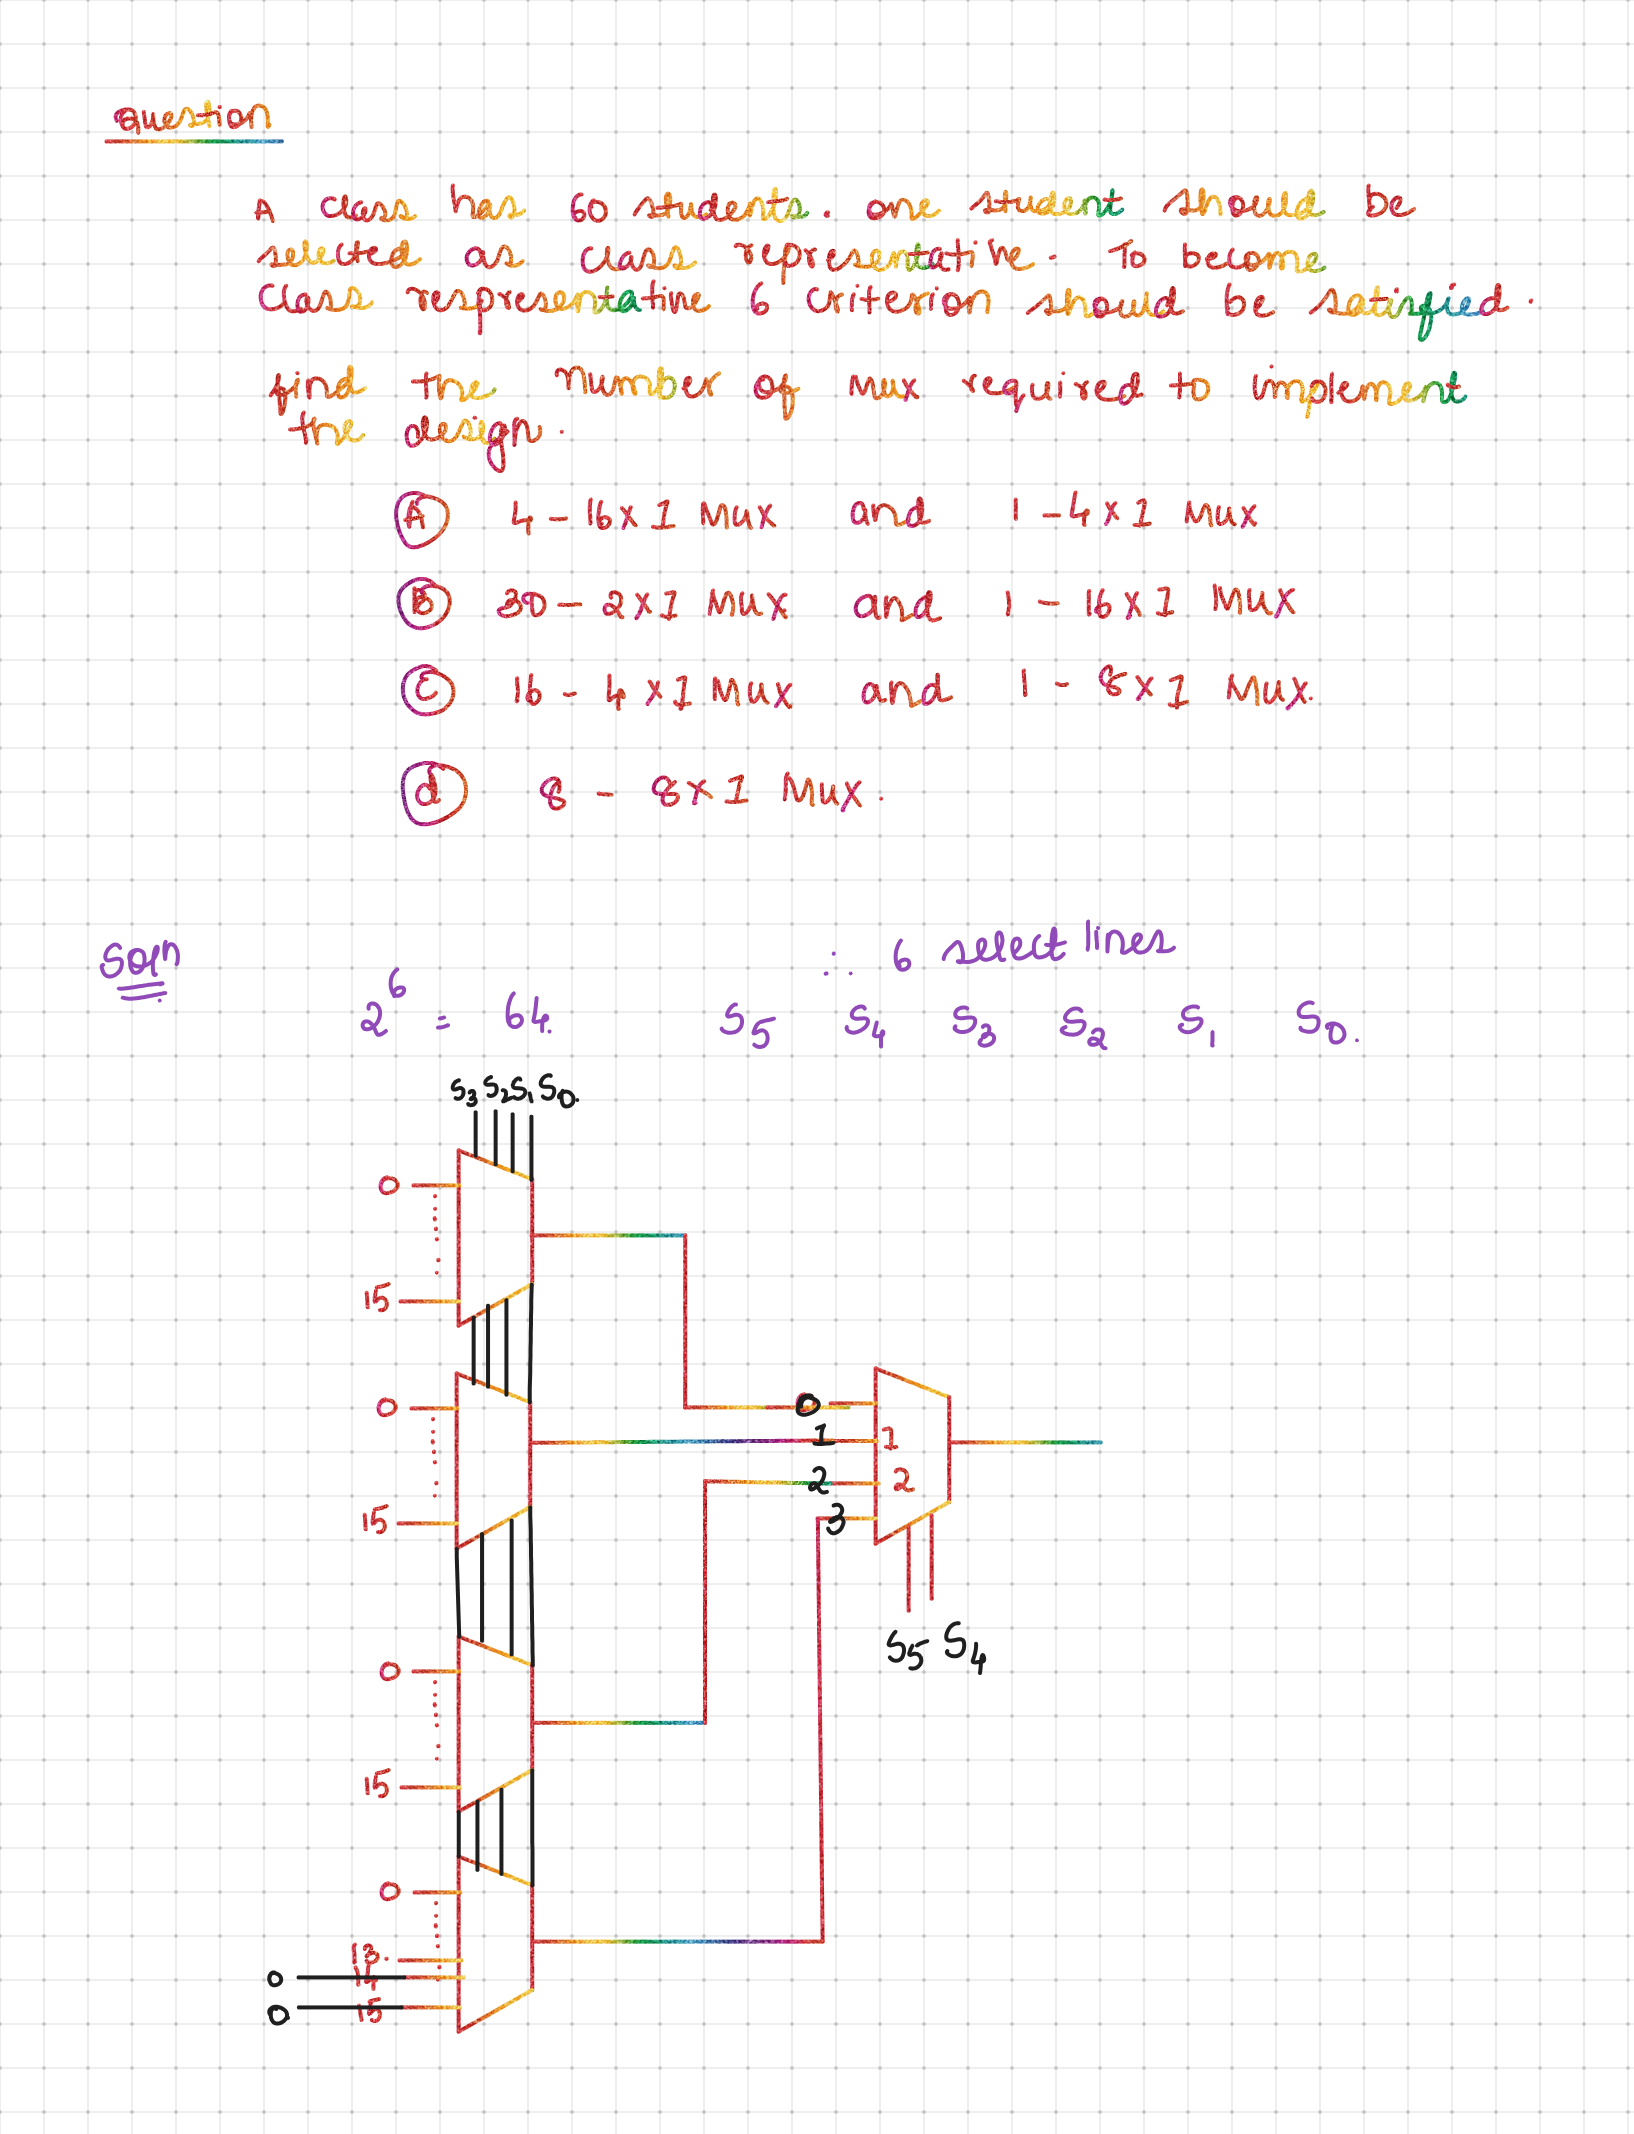 Question
A class has 60 students. one student should be
selected as class representative. To become
Class respresentative 6 criterion should be satisfied.
find the number of mux required to implement
the design.
A 4 - 16 x 1 Mux and 1 - 4 x 1 Mux
B 30 - 2 x 1 Mux and 1 - 16 x 1 Mux
C 16 - 4 x 1 Mux and 1 - 8 x 1 Mux.
d 8 - 8 x 1 Mux.
Soln ∴ 6 select lines
2^6 = 64. S5 S4 S3 S2 S1 S0.
S3 S2 S1 S0.
0
15
0
0
1 1
2 2
15
3
S5 S4
0
15
0
13.
0 14
0 15